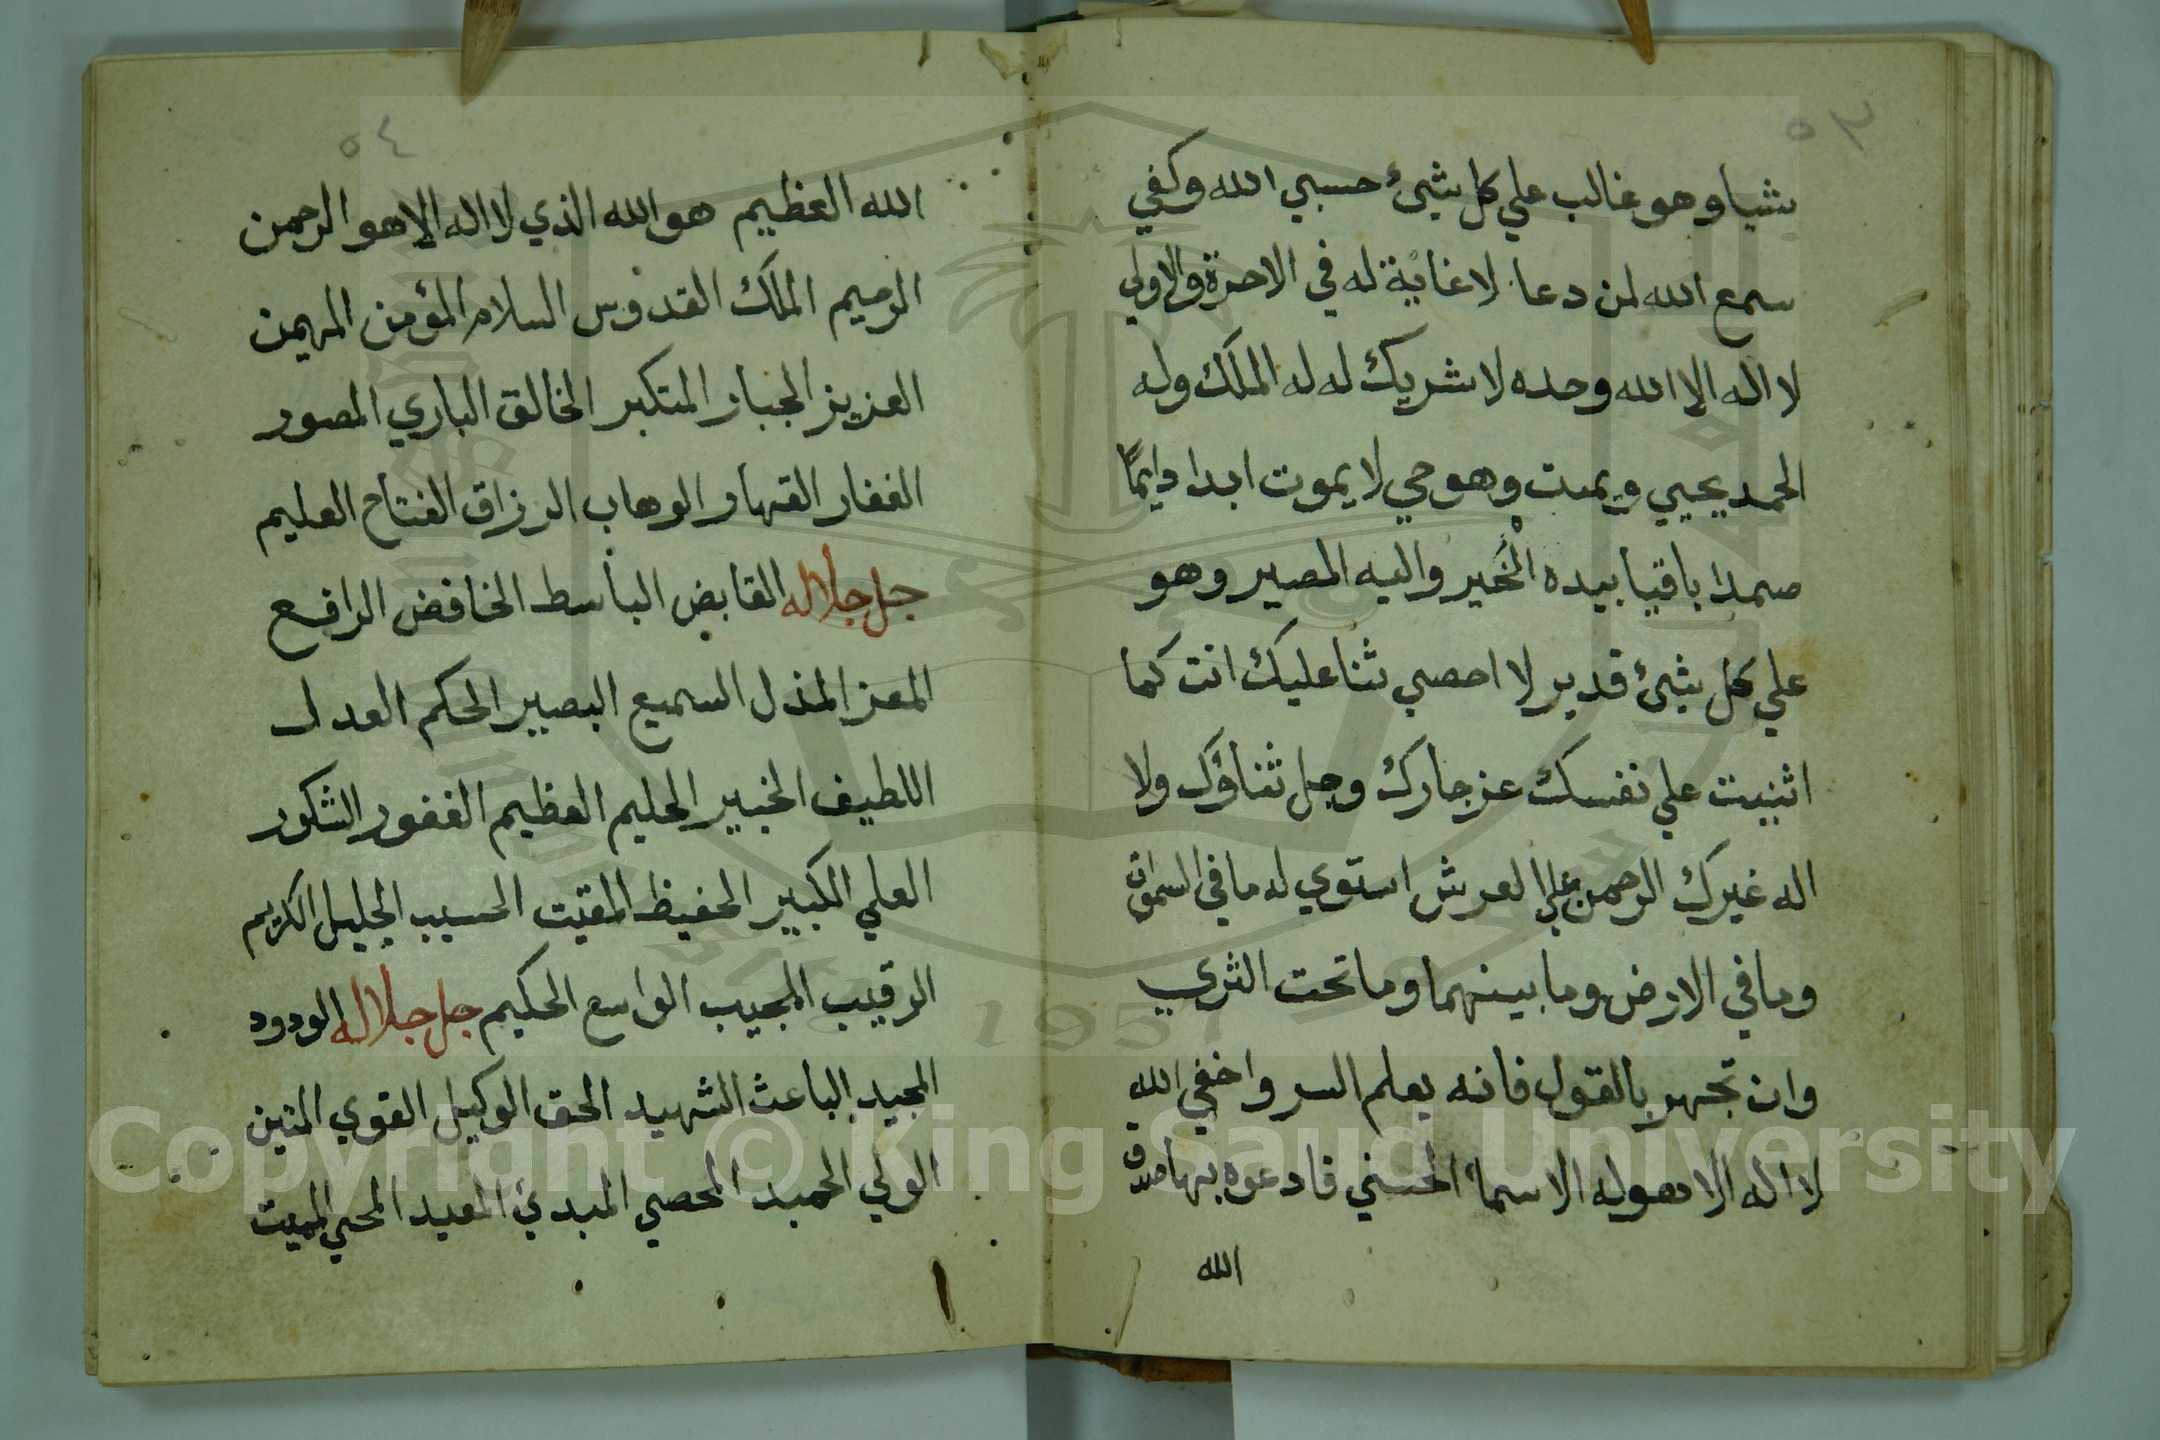 ٥٣
يشيا وهو غالب علي كل شيئ حسبي الله وكفي
سمع الله لمن دعا لا غاية له في الاخرة والاولي
لا اله الا الله وحده لا شريك له له الملك وله
الحمد يحيي ويميت وهو حي لا يموت ابدا دايمًا
صمدا باقيا بيده الْخَير واليه المصير وهو
علي كل شيئ قدير لا احصي ثنا عليك انت كما
اثنيت علي نفسك عز جارك وجل ثناؤك ولا
اله غيرك الرحمن علي العرش استوي له ما في السموات
وما في الارض وما بينهما وما تحت الثري
وان تجهر بالقول فانه يعلم السر واخفي الله
لا اله الا هو له الاسمآ الحسني فادعوه بها صدق
الله
٥٤
الله العظيم هو الله الذي لا اله الا هو الرحمن
الرحيم الملك القدوس السلام المؤمن المهيمن
العزيز الجبار المتكبر الخالق الباري المصور
الغفار القهار الوهاب الرزاق الفتاح العليم
جل جلاله القابض الباسط الخافض الرافع
المعز المذل السميع البصير الحكم العدل
اللطيف الخبير الحليم العظيم الغفور الشكور
العلي الكبير الحفيظ المقيت الحسيب الجليل الكريم
الرقيب المجيب الواسع الحكيم جل جلاله الودود
المجيد الباعث الشهيد الحق الوكيل القوي المتين
الولي الحميد المحصي المبدئ المعيد المحي المميت
Copyright © King Saud University
1957